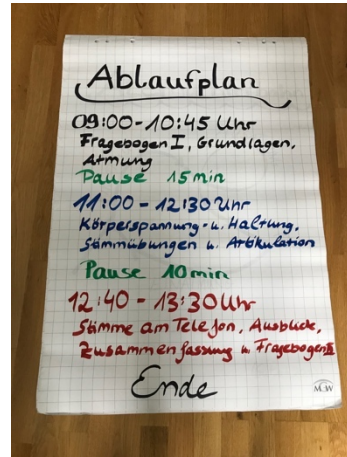 Ablaufplan
09:00-10:45 Uhr
Fragebogen I, Grundlagen,
Atmung
Pause 15 min
11:00 - 12:30 Uhr
Körperspannung - u. Haltung,
Stimmübungen u. Artikulation
Pause 10 min
12:40 - 13:30 Uhr
Stimme am Telefon, Ausblick,
Zusammenfassung u. Fragebogen II
Ende
MGW